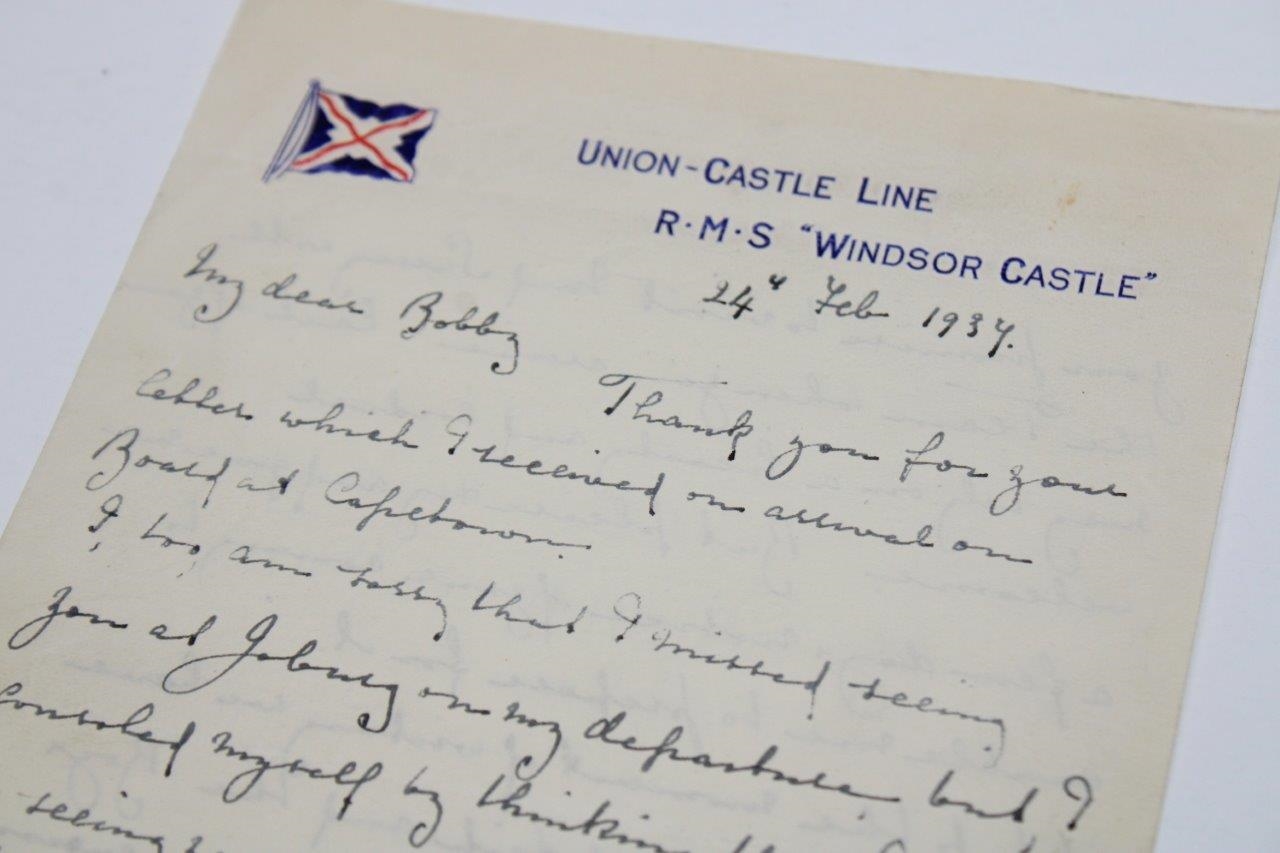 UNION-CASTLE LINE
R·M·S "WINDSOR CASTLE"
24th Feb 1937.
My dear Bobby
Thank you for your
letter which I received on arrival on
Board at Capetown.
I, too, am sorry that I missed seeing
you at Joburg on my departure but I
consoled myself by thinking
seeing